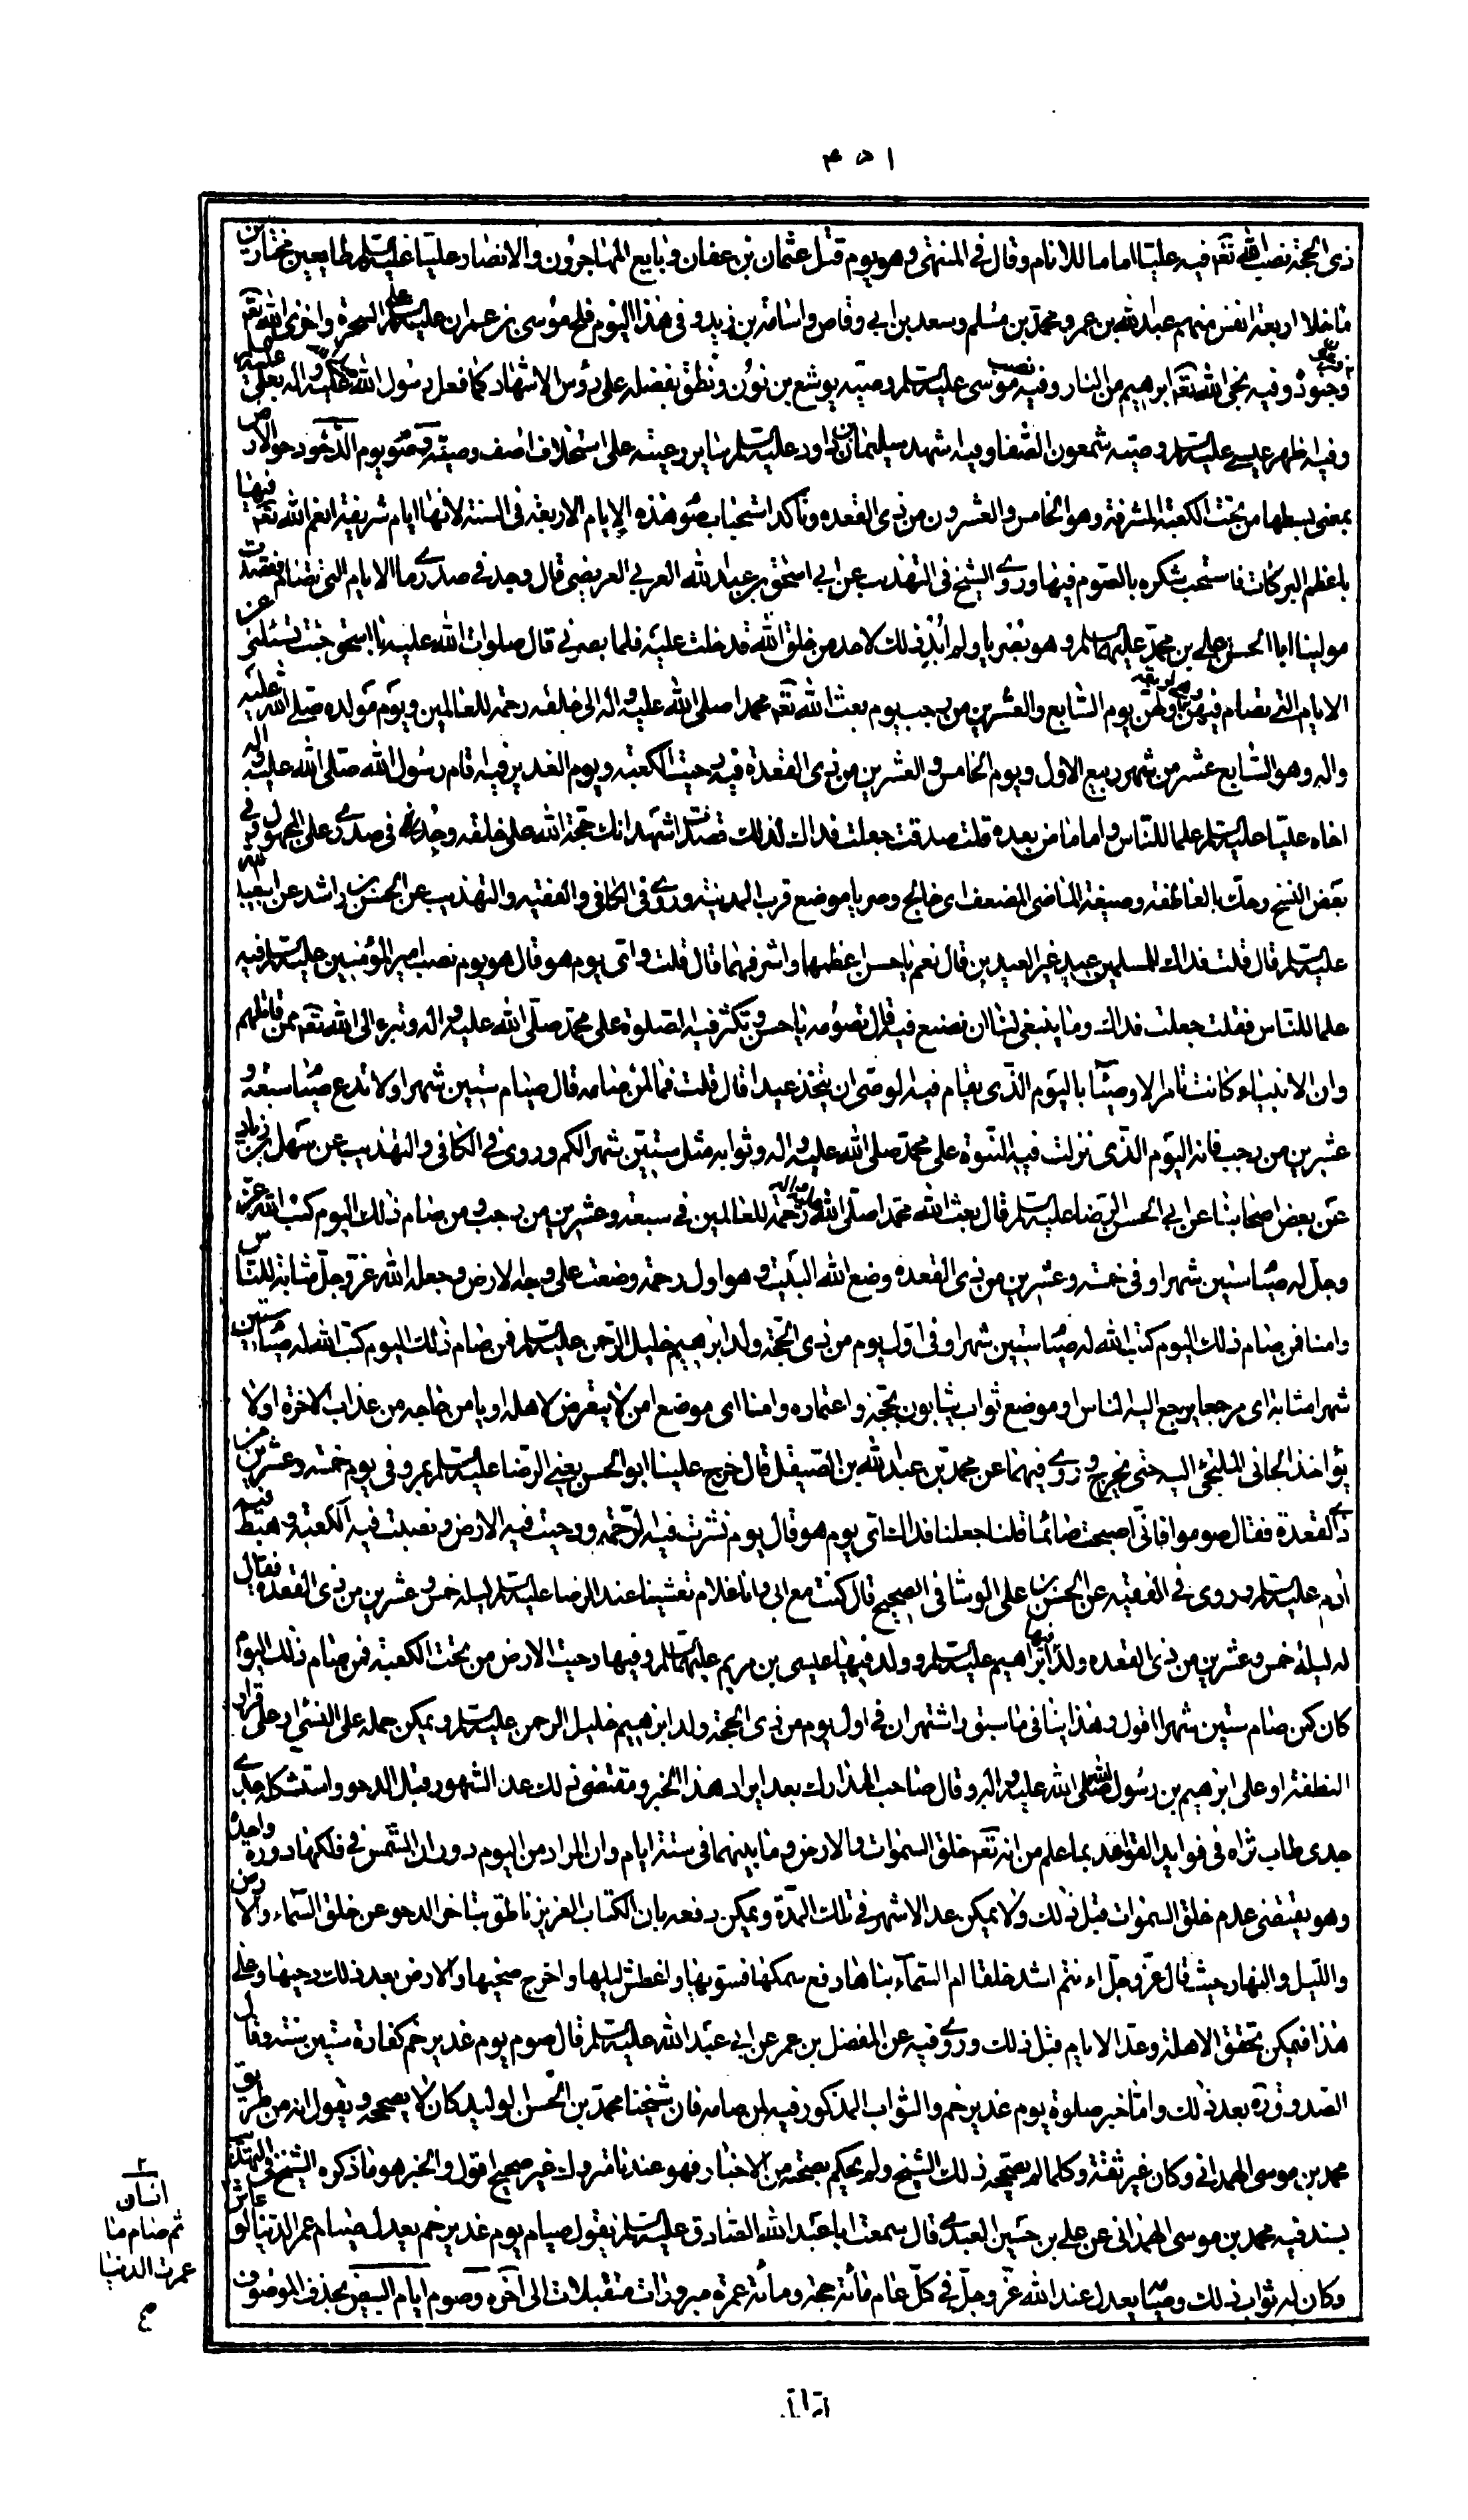 ٤٥١
ذى الحجة نصب الله تعه فيه عليّا اماما للانام وقال فى المنتهى وهو يوم قتل عثمان بن عفان وبايع المهاجرون والانصار عليّا عليه السلم طايعين مختارين
ما خلا اربعة انفس منهم عبد الله بن عمرو محمد بن مسلم وسعد بن ابى وقاص واسامة بن زيد وفى هذا اليوم فلج موسى بن عمران عليه السلم على السحرة واخزى الله تعه
وجنوده وفيه نجى الله تعه ابرهيم من النار وفيه نصب موسى عليه السلم وصيه يوشع بن نون ونطق بفضله على رؤس الاشهاد كما فعل رسول الله صلى الله عليه واله بعلى عليه
وفيه اظهر عيسى عليه السلم وصيه شمعون الصفا وفيه اشهد سليمان بن داود عليه السلم ساير رعيته على استخلاف اصف وصيه وصوم يوم الدحو دحو الارض
بمعنى بسطها من تحت الكعبة المشرفة وهو الخامس والعشرون من ذى القعده وتاكد استحباب صوم هذه الايام الاربعة فى السنة لانها ايام شريفة انعم الله تعه فيها
باعظم البركات فاستحب شكره بالصوم فيها وروى الشيخ فى التهذيب عن ابى اسحق بن عبد الله العربى العريضى قال وجد فى صدرى ما الايام التى تصام فقصدت
مولينا ابا الحسن على بن محمد عليهما السلم وهو بصريا ولم ابد ذلك لاحد من خلق الله فدخلت عليه فلما بصر بى قال صلوات الله عليه يا ابا اسحق جئت تسئلنى عن
الايام التى تصام فيهن وهى اربعة اولهن يوم السابع والعشرين من رجب يوم بعث الله تعه محمدا صلى الله عليه واله الى خلقه رحمة للعالمين ويوم مولده صلى الله عليه
واله وهو السابع عشر من شهر ربيع الاول ويوم الخامس والعشرين من ذى القعدة فيه دحيت الكعبة ويوم الغدير فيه اقام رسول الله صلى الله عليه واله
اخاه عليّا عليه السلم علما للناس واماما من بعده قلت صدقت جعلت فداك لذلك قصدت اشهد انك حجة الله على خلقه وجد فى صدرى على المجهول وفى
بعض النسخ وحك بالعاطفة وصيغة الماضى المضعف اى خالج وصريا موضع قرب المدينة وروى فى الكافى والفقيه والتهذيب عن الحسن بن راشد عن ابيعبد الله
عليه السلم قال قلت فداك للمسلمين عيد غير العيدين قال نعم يا حسن اعظمها واشرفهما قال قلت واى يوم هو قال هو يوم نصب امير المؤمنين عليه السلم فيه
علما للناس فقلت جعلت فداك وما ينبغى لنا ان نصنع فيه قال تصومه يا حسن وتكثر فيه الصلوة على محمد صلى الله عليه واله وتبرء الى الله تعه ممن ظلمهم
وان الانبياء كانت تامر الاوصياء باليوم الذى يقام فيه الوصى ان يتخذ عيدا قال قلت فما لمن صامه قال صيام ستين شهرا ولا تدع صيام سبعة و
عشرين من رجب فانه اليوم الذى نزلت فيه النبوة على محمد صلى الله عليه واله وثوابه مثل ستين شهرا لكم وروى فى الكافى والتهذيب عن سهل بن زياد
عن بعض اصحابنا عن ابى الحسن الرضا عليه السلم قال بعث الله محمدا صلى الله عليه واله رحمة للعالمين فى سبعة وعشرين من رجب ومن صام ذلك اليوم كتب الله عز
وجل له صيام ستين شهرا وفى خمسة وعشرين من ذى القعده وضع الله البيت وهو اول رحمة وضعت على وجه الارض وجعله الله عز وجل مثابة للناس
وامنا فمن صام ذلك اليوم كتب الله له صيام ستين شهرا وفى اول يوم من ذى الحجة ولد ابرهيم خليل الرحمن عليه السلم فمن صام ذلك اليوم كتب الله له صيام ستين
شهرا مثابة اى مرجعا يرجع اليه الناس او موضع ثواب يثابون بحجة واعتماره وامنا اى موضع امن لا يتعرض لاهله او يامن حاجه من عذاب الاخرة او لا
يؤاخذ الجانى الملتجئ اليه حتى يخرج وروى فيهما عن محمد بن عبد الله بن الصيقل قال خرج علينا ابو الحسن يعنى الرضا عليه السلم بمرو فى يوم خمسة وعشرين من
ذى القعدة فقال صوموا فانى اصبحت صائما قلنا جعلنا فداك اى يوم هو قال يوم نشرت فيه الرحمة ودحيت فيه الارض ونصبت فيه الكعبة وهبط فيه
ادم عليه السلم وروى فى الفقيه عن الحسن بن على الوشا فى الصحيح قال كنت مع ابى وانا غلام تعشينا عند الرضا عليه السلم ليلة خمس وعشرين من ذى القعده فقال
له ليلة خمس وعشرين من ذى القعده ولد فيها ابراهيم عليه السلم وولد فيها عيسى بن مريم عليهما السلم وفيها دحيت الارض من تحت الكعبة فمن صام ذلك اليوم
كان كمن صام ستين شهرا اقول وهذا ينافى ما سبق واشتهر ان فى اول يوم من ذى الحجة ولد ابرهيم خليل الرحمن عليه السلم ويمكن حمله على النسئ او على قرار
النطفة او على ابرهيم بن رسول الله صلى الله عليه واله وقال صاحب المدارك بعد ايراد هذا الخبر ومقتضى ذلك عد الشهور قبل الدحو واستشكله جدى
جدى طاب ثراه فى فوايد القواعد بما علم من انه تعه خلق السموات والارض وما بينهما فى ستة ايام وان المراد من اليوم دوران الشمس فى فلكها دورة واحدة
وهو يقتضى عدم خلق السموات قبل ذلك ولا يمكن عد الاشهر فى تلك المدة ويمكن دفعه بان الكتاب العزيز ناطق بتاخر الدحو عن خلق السماء والارض
والليل والنهار حيث قال عز وجل اءنتم اشد خلقا ام السماء بناها رفع سمكها فسويها واغطش ليلها واخرج ضحيها والارض بعد ذلك دحيها وعلى
هذا فيمكن تحقق الاهلة وعد الايام قبل ذلك وروى فيه عن المفضل بن عمر عن ابى عبد الله عليه السلم قال صوم يوم غدير خم كفارة ستين سنة وقال
الصدوق ره بعد ذلك واما خبر صلوة يوم غدير خم والثواب المذكور فيه لمن صامه فان شيخنا محمد بن الحسن بن الوليد كان لا يصححه ويقول انه من طريق
محمد بن موسى الهمدانى وكان غير ثقة وكلما لم يصححه ذلك الشيخ ولم يحكم بصحته من الاخبار فهو عندنا متروك غير صحيح اقول والخبر هو ما ذكره الشيخ فى التهذيب
بسند فيه محمد بن موسى الهمدانى عن على بن حسين العبدى قال سمعت ابا عبد الله الصادق عليه السلم يقول صيام يوم غدير خم يعدل صيام عمر الدنيا لو عاش
وكان له ثواب ذلك وصيامه يعدل عند الله عز وجل فى كل عام مائة حجة ومائة عمرة مبرورات متقبلات الى اخره وصوم ايام البيض بحذف الموصوف
انسان
ثم صام ما
عمرت الدنيا